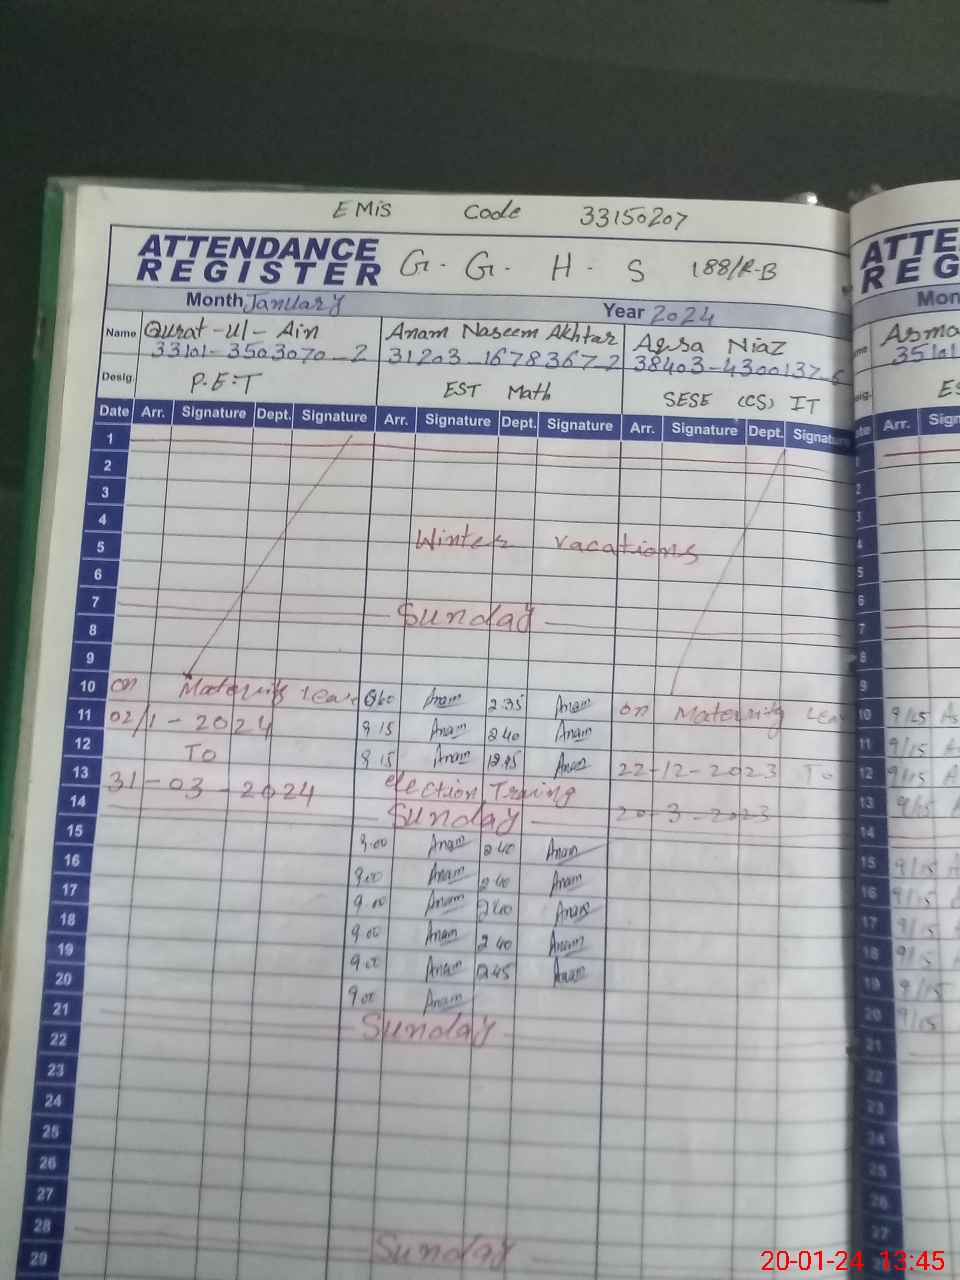 EMIS Code 33150207
ATTENDANCE REGISTER G. G. H. S 188/R-B
Month January Year 2024
Name Qurat-ul-Ain Anam Naseem Akhtar Aqsa Niaz
33101-3503070-2 31203-1678367-2 38403-4300137-6
Desig. P.E.T EST Math SESE (CS) IT
Date Arr. Signature Dept. Signature Arr. Signature Dept. Signature Arr. Signature Dept. Signature
1
2
3
4
5 Winter vacations
6
7 Sunday
8
9
10 on Maternity Leave Anam 2.35 Anam on Maternity
11 02/1-2024 9 15 Anam 2 40 Anam
12 To 9 15 Anam 12.45 Anam 22-12-2023 To
13 31-03-2024 election Traning
14 Sunday 20-3-2023
15 9.00 Anam 2 40 Anam
16 9.00 Anam 2 40 Anam
17 9.00 Anam 2 40 Anam
18 9.00 Anam 2 40 Anam
19 9.00 Anam 2 45 Anam
20 9.00 Anam
21 Sunday
22
23
24
25
26
27
28 Sunday
29
ATTE
REG
Mon
Asma
35101
Arr. Sign
1
2
3
4
5
6
7
8
9
10 9/15
11 9/15
12 9/15
13 9/15
14
15 9/15
16 9/15
17 9/15
18 9/15
19 9/15
20 9/15
21
22
23
24
25
26
27
20-01-24 13:45